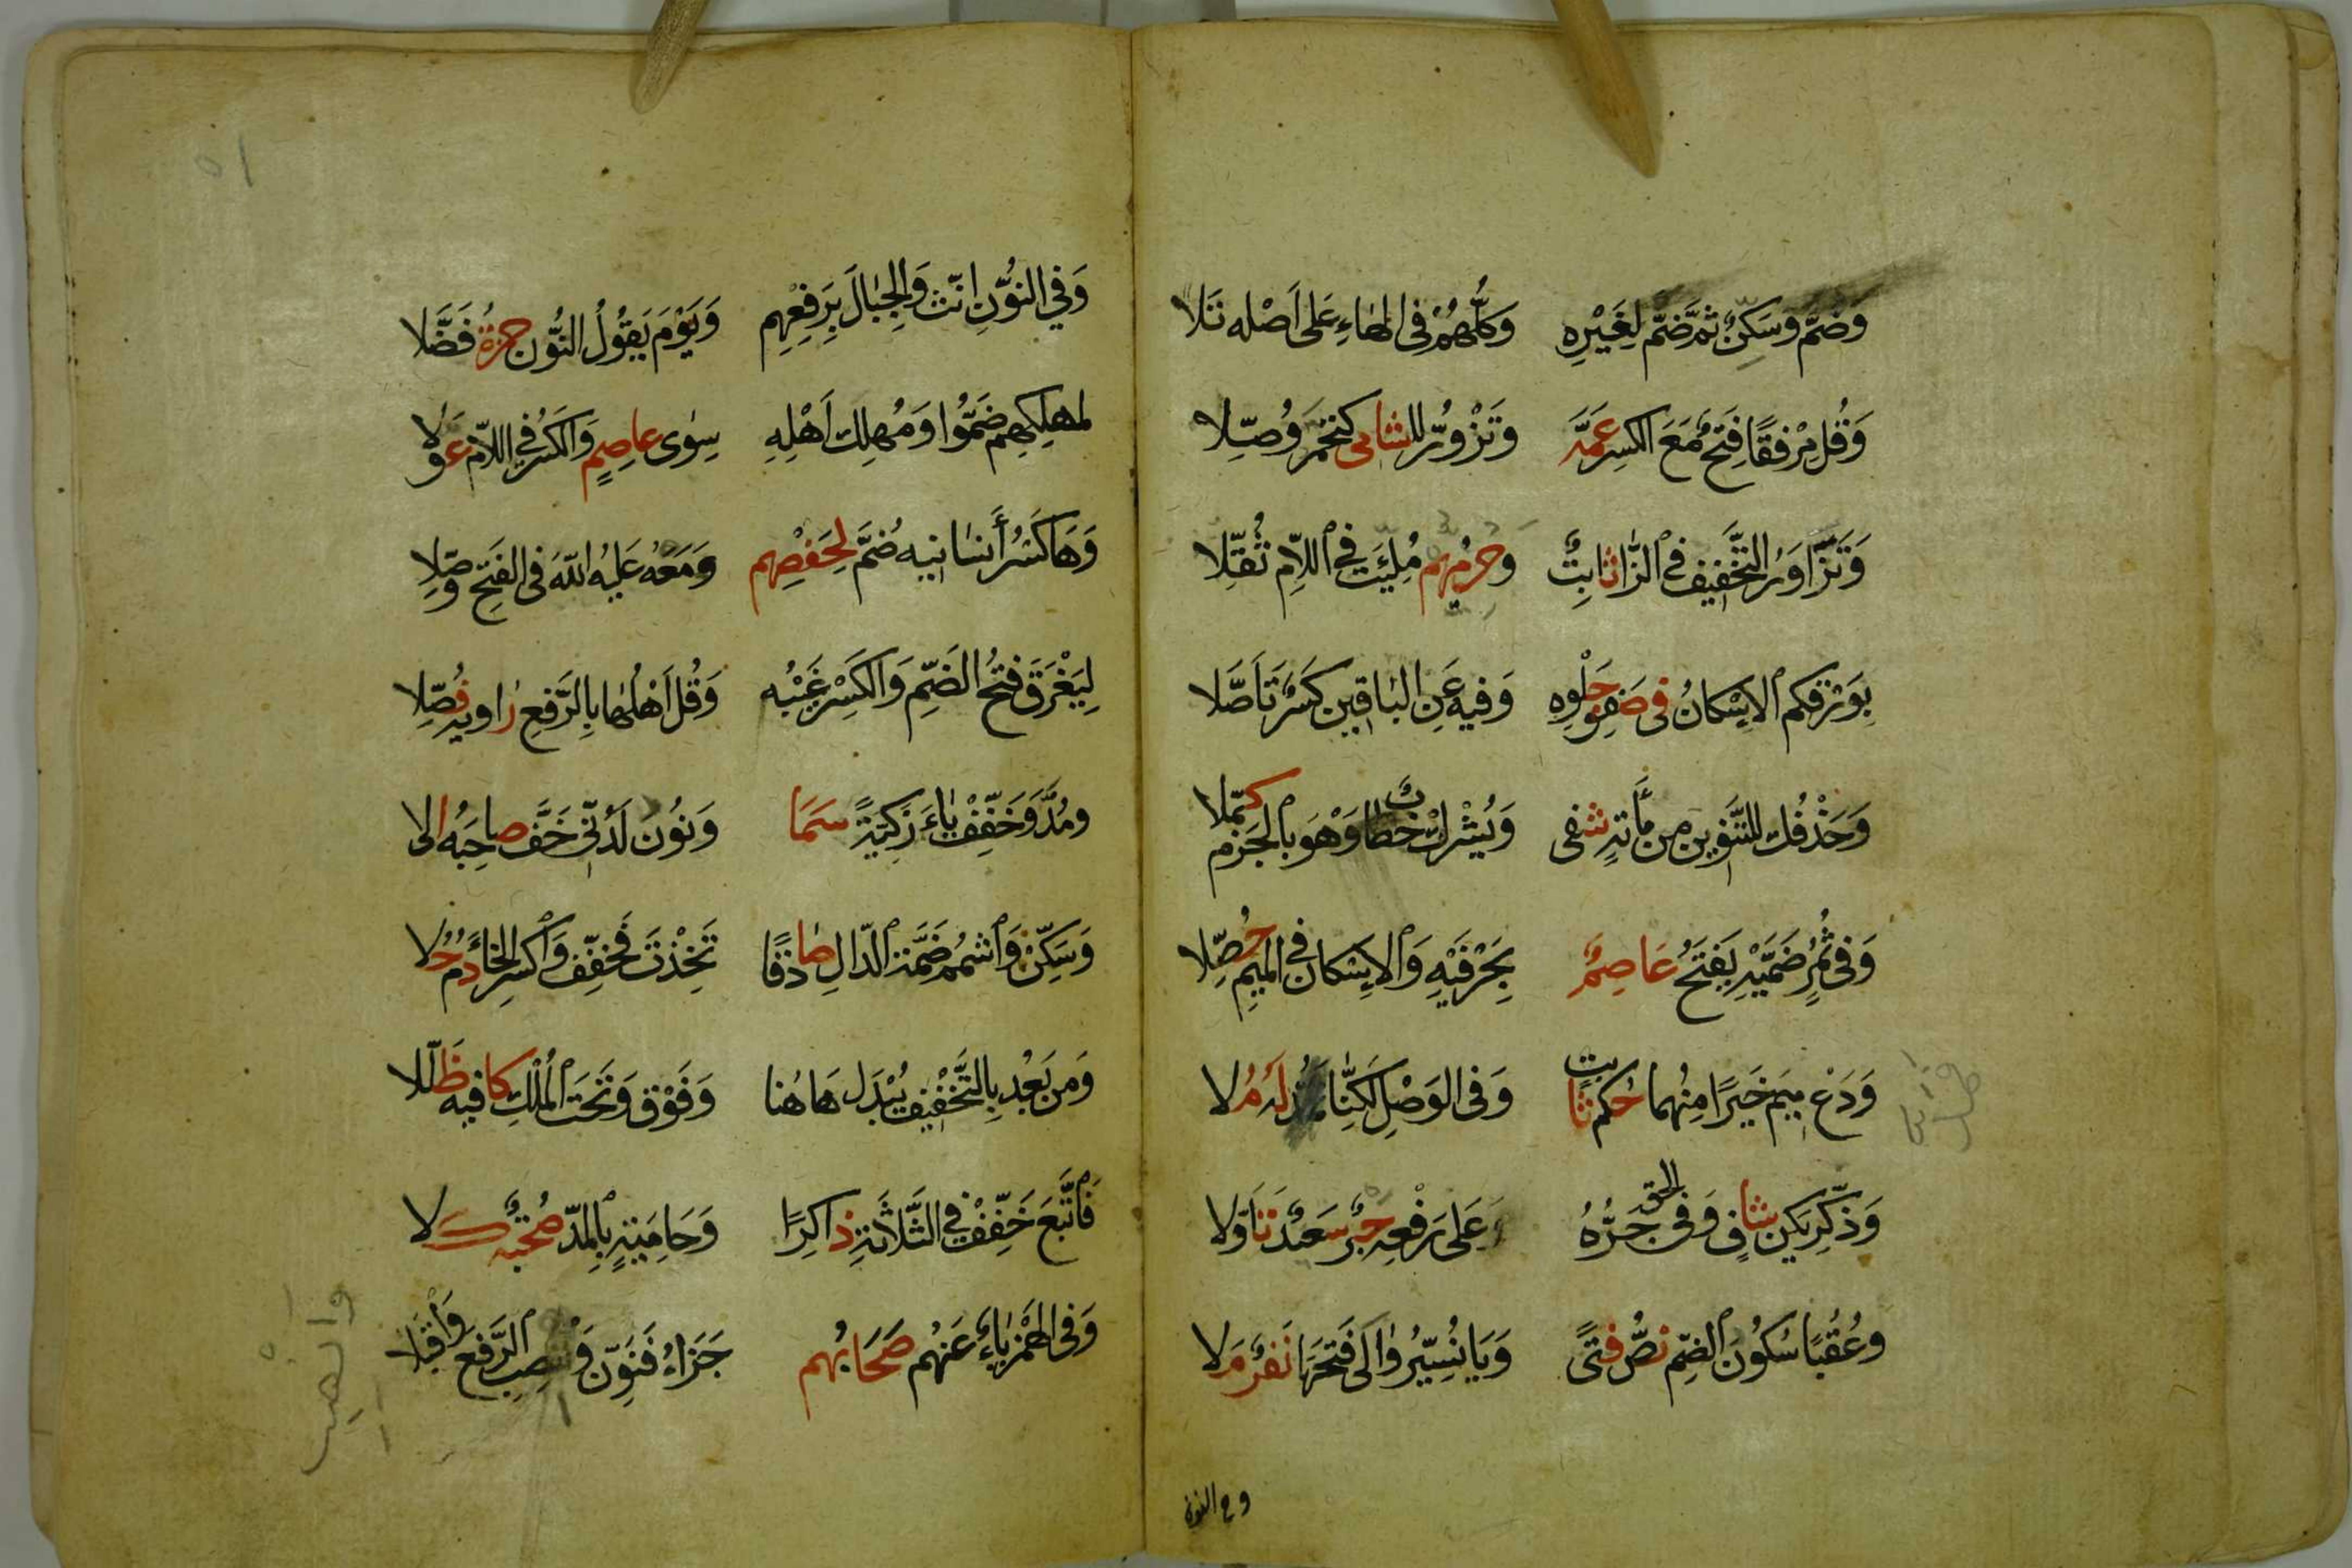 وَضُمَّ وَسَكِّنْ ثُمَّ ضُمَّ لِغَيْرِهِ وَكُلُّهُمْ فِى الهَاءِ عَلَى اَصْلِهِ تَلَا
وَقُلْ مِرْفَقًا فَتْحٌ مَعَ الكَسْرِ عَمَّهُ وَتَزْوَرُّ لِلشَّامِى كَتَحْمَرُّ وُصِّلَا
وَتَزَّاوَرُ التَّخْفِيفُ فِي الزَّاى ثَابِتٌ وَحِرْمِيُّهُمْ مُلِّئْتَ فِي اللَّامِ ثَقَّلَا
بِوَرْقِكُمُ الاِسْكَانُ فِى صَفْوِ حُلْوِهِ وَفِيهِ عَنِ البَاقِينَ كَسْرٌ تَاَصَّلَا
وَحَذْفُكَ لِلتَّنْوِينِ مِنْ مِائَةٍ شَفَى وَتُشْرِكْ خِطَابٌ وَهْوَ بِالجَزْمِ كُمِّلَا
وَفِى ثُمُرٍ ضَمَّيْهِ يَفْتَحُ عَاصِمٌ بِحَرْفَيْهِ وَالاِسْكَانُ فِي المِيمِ حُصِّلَا
وَدَعْ مِيمَ خَيْرًا مِنْهُمَا حُكْمُ ثَابِتٍ وَفِى الوَصْلِ لَكِنَّا فَمُدَّ لَهُ مُلَا
وَذَكِّرْ يَكُنْ شَافٍ وَفِى الحَقِّ جَرُّهُ عَلَى رَفْعِهِ حَبْرٌ سَعِيدٌ تَاَوَّلَا
وَعُقْبًا سُكُونُ الضَّمِّ نَصُّ فَتًى وَيَا نُسَيِّرُ وَالَى فَتْحَهَا نَفَرٌ مَلَا
وفى النون
وَفِي النُّونِ اَنِّثْ وَالجِبَالَ بِرَفْعِهِمْ وَيَوْمَ يَقُولُ النُّونُ حَمْزَةُ فَضَّلَا
لِمَهْلِكِهِمْ ضَمُّوا وَمَهْلِكَ اَهْلِهِ سِوَى عَاصِمٍ وَالكَسْرُ فِي اللَّامِ عُوِّلَا
وَهَا كَسْرُ أَنْسَانِيهِ ضُمَّ لِحَفْصِهِمْ وَمَعْهُ عَلَيْهِ اللّٰهَ فِى الفَتْحِ وَصَّلَا
لِيَغْرَقَ فَتْحُ الضَّمِّ وَالكَسْرِ غَيْبُهُ وَقُلْ اَهْلُهَا بِالرَّفْعِ رَاوِيهِ فَصَّلَا
وَمُدَّ وَخَفِّفْ يَاءَ زَاكِيَةً سَمَا وَنُونَ لَدُنِّى خَفَّ صَاحِبُهُ اِلَى
وَسَكِّنْ وَاَشْمِمْ ضَمَّةَ الدَّالِ صَادِقًا تَخِذْتَ فَخَفِّفْ وَاكْسِرِ الخَاءَ دُمْ حُلَا
وَمِنْ بَعْدُ بِالتَّخْفِيفِ يُبْدِلَ هَاهُنَا وَفَوْقَ وَتَحْتَ المُلْكِ كَافِيهِ ظَلَّلَا
فَاَتْبَعَ خَفِّفْ فِي الثَّلَاثَةِ ذَاكِرًا وَحَامِيَةٍ بِالمَدِّ صُحْبَتُهُ كَلَا
وَفِى الهَمْزِ يَاءٌ عَنْهُمْ صِحَابُهُمْ جَزَاءُ فَنَوِّنْ وَانْصِبِ الرَّفْعَ وَاَقْبِلَا